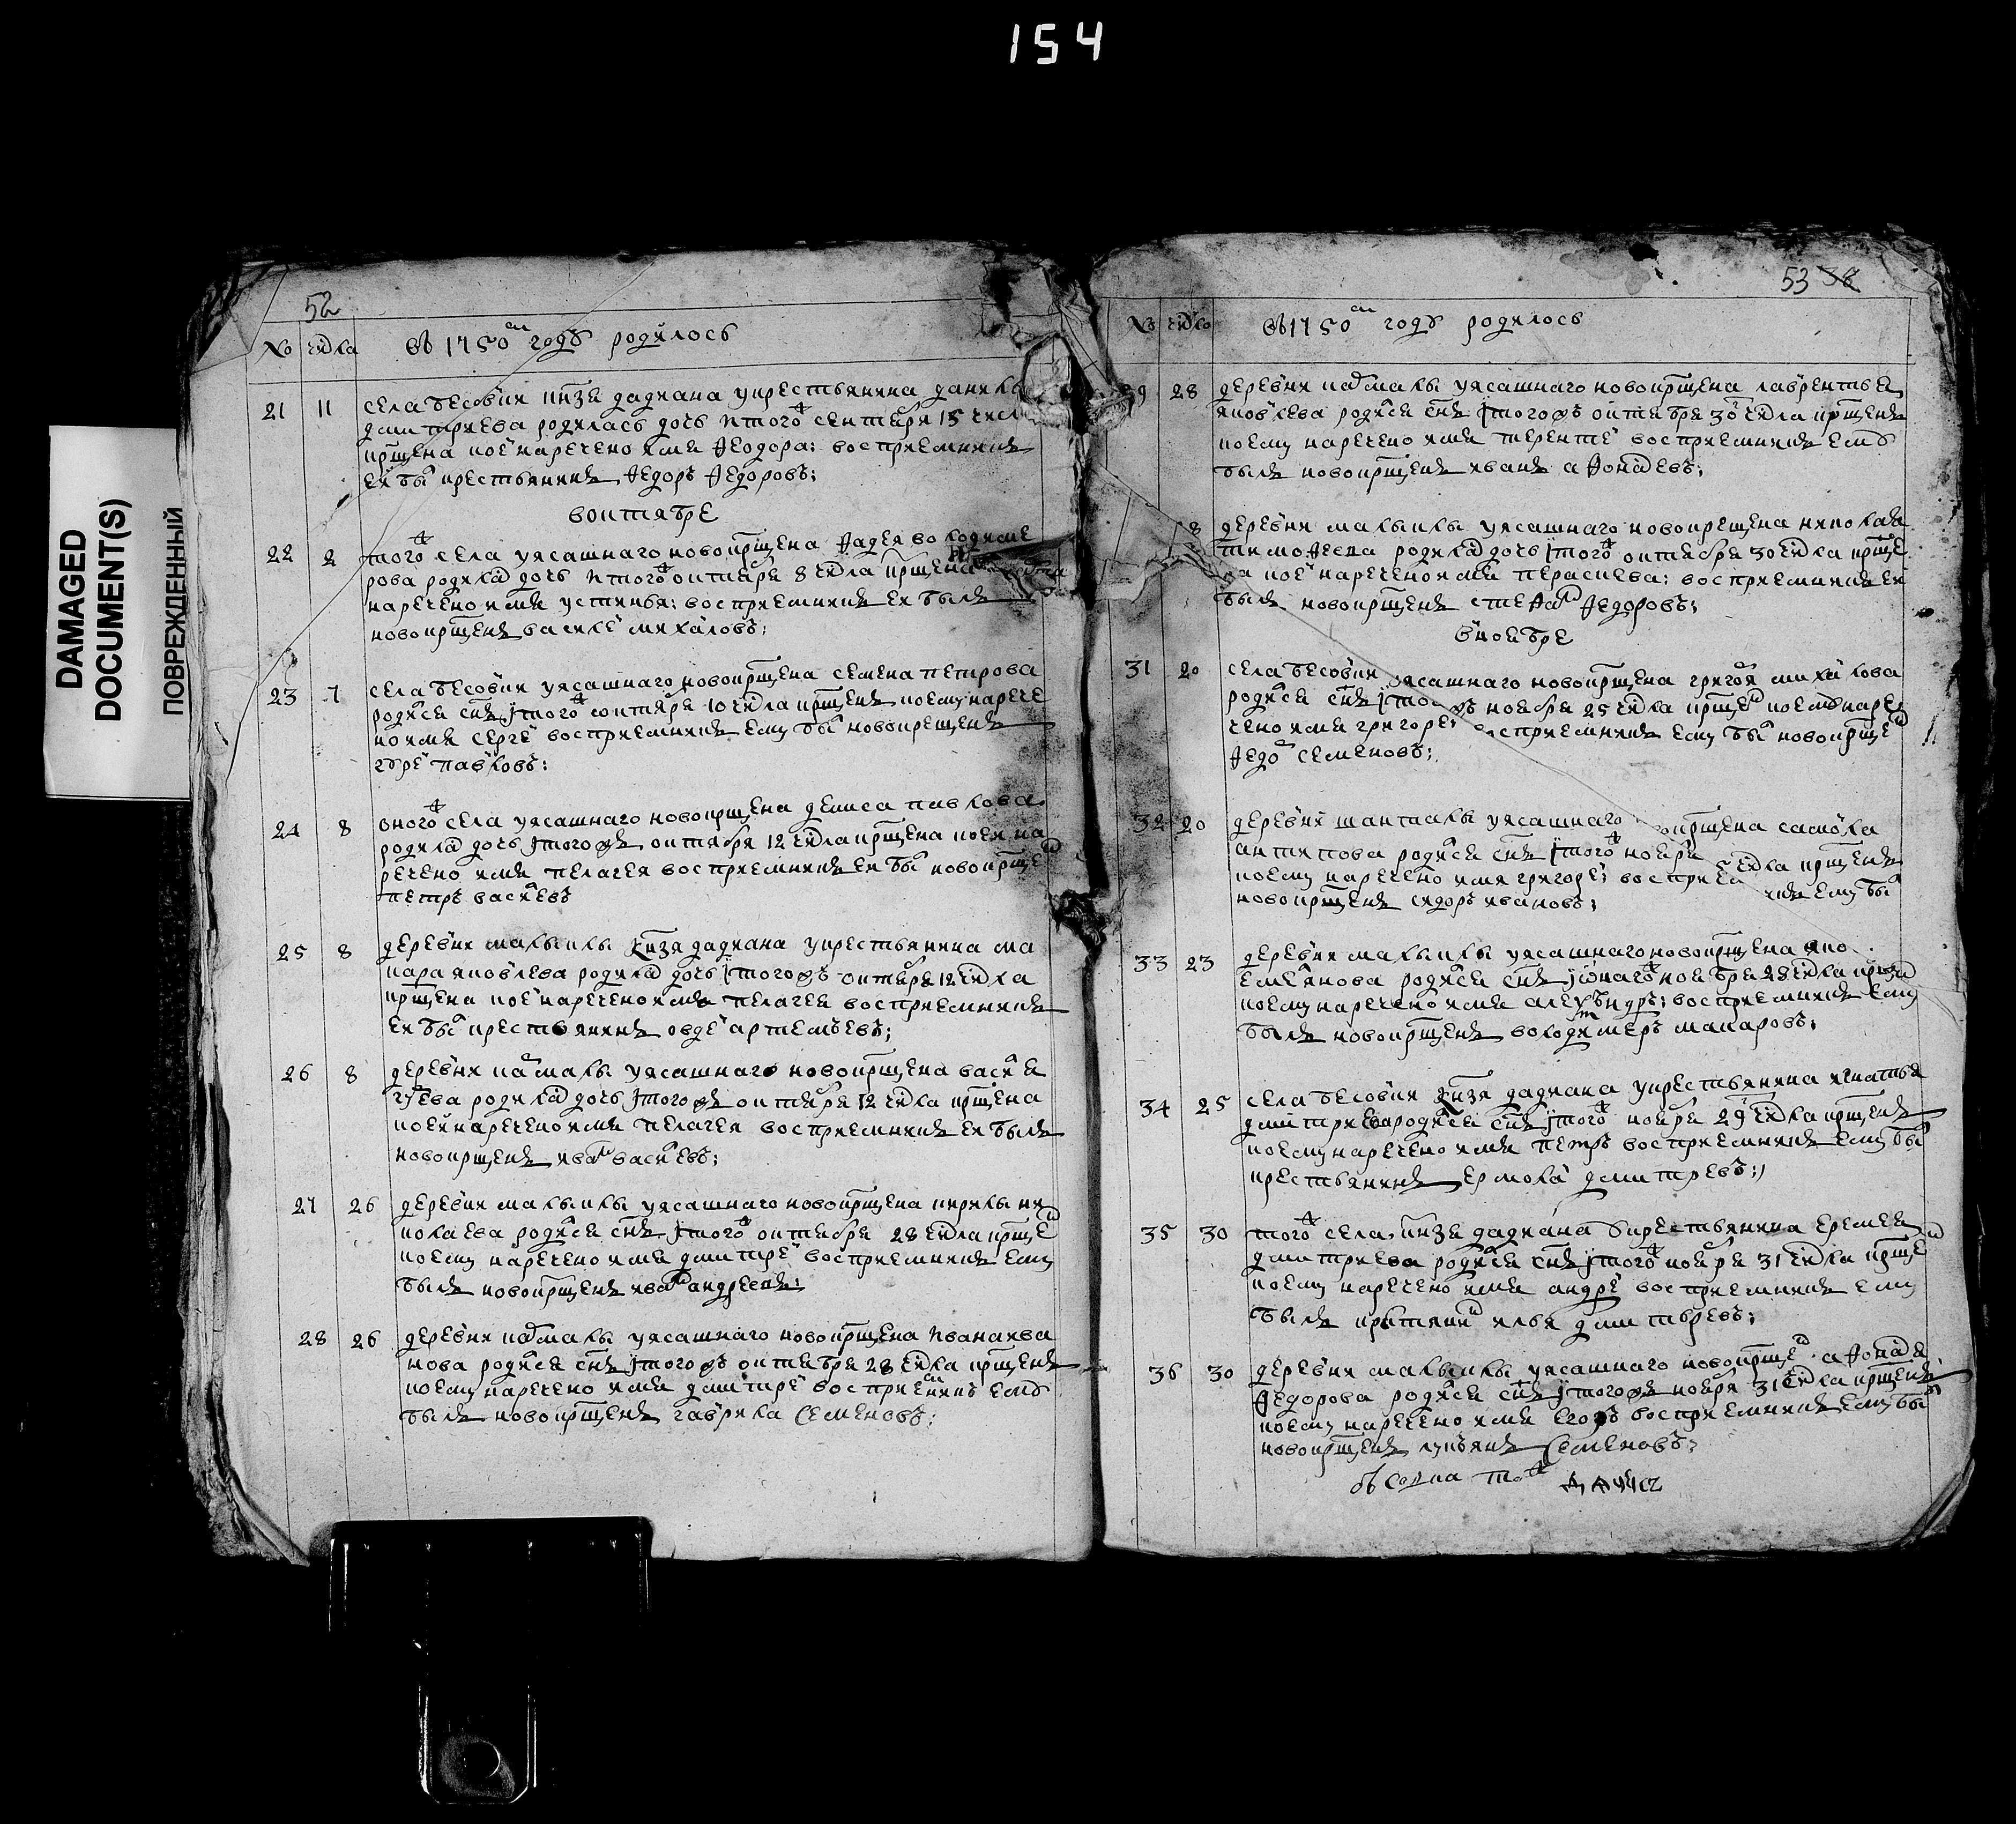 154
DAMAGED
DOCUMENT(S)
ПОВРЕЖДЕННЫЙ
52
№ числа въ 1750м годѣ родилось
21 11 села бесовки кнзя дадиана у крестьянина данилы
дмитриева родилась дочь и того ж сентебря 15 числ
крщена и ей наречено имя феодора: восприемникъ
ея бы крестьянинъ федоръ федоровъ;
в октябре
22 2 того ж села у ясашнаго новокрщена фадея володиме
рова родилас дочь и того ж октября 8 числа крщена
наречено имя устинья: восприемникъ ея былъ
новокрщенъ василеи михаиловъ;
23 7 села бесовки у ясашнаго новокрщена семена петрова
родился снъ и того ж октября 10 числа крщенъ и ему нарече
но имя сергеи восприемникъ ему бы новокрещенъ
юреи павловъ:
24 8 оного ж села у ясашнаго новокрщена дениса павлова
родилас дочь и того ж октября 12 числа крщена и ея на
речено имя пелагея восприемникъ ея бы новокрще
петръ василевъ
25 8 деревни малыклы кнзя дадиана у крестьянина ма
кара яковлева родилас дочь и того жъ октебря 12 числа
крщена и ей наречено имя пелагея восприемникъ
ея бы крестьянинъ овдеи артемьевъ;
26 8 деревни калмаклы у ясашнаго новокрщена василя
родилас дочь и того ж октебря 12 числа крщена
и ея наречено имя пелагея восприемникъ ея былъ
новокрщенъ иван василевъ;
27 26 деревни малыклы у ясашнаго новокрщена кирилы ни
колаева родился снъ и того ж октебря 28 числа крще
и ему наречено имя дмитреи восприемникъ ему
былъ новокрщенъ иван андреевъ;
28 26 деревни калмаклы у ясашнаго новокрщена ивана ива
нова родился снъ и того жъ октебря 28 числа крщенъ
и ему наречено имя дмитреи восприемникъ емꙋ
былъ новокрщенъ гаврила семеновъ;
53 38
№ число въ 1750м годѣ родилось
29 28 деревни калмаклы у ясашнаго новокрщена лаврентья
яковлева родился снъ и того жъ октебря 30 числа крщенъ
и ему наречено имя терентеи восприемникъ емꙋ
былъ новокрщенъ иванъ афонасевъ;
8 деревни малыклы у ясашнаго новокрещена николая
тимофеева родилас дочь и того ж октебря 30 числа крще
на и ей наречено имя парасковья: восприемникъ ея
былъ новокрщенъ степан федоровъ;
в ноебре
31 20 села бесовки у ясашнаго новокрщена григоря михаилова
родился снъ и того жъ ноебря 25 числа крще и емꙋ наре
чено имя григореи восприемникъ ему бы новокрще
федор семеновъ;
32 20 деревни шантаклы у ясашнаго новокрщена самоила
антипова родился снъ и того ж ноября числа крщенъ
и ему наречено имя григореи; восприемникъ ему бы
новокрщенъ сидоръ ивановъ;
33 23 деревни малыклы у ясашнаго новокрщена яко
емелянова родился снъ и онаго ж ноебря 28 числа крще
и ему наречено имя алеѯандръ; восприемникъ ему
былъ новокрщенъ володимеръ макаровъ;
34 25 села бесовки кнзя дадиана у крестьянина игнатья
дмитриева родился снъ и того ж ноебря 29 числа крщенъ
и ему наречено имя петръ восприемникъ ему бы
крестьянинъ ермолаи дмитревъ;
35 30 того ж села кнзя дадиана ꙋ крестьянина еремея
дмитриева родился снъ и того ж ноебря 31 числа крще
и ему наречено имя андреи восприемникъ ему
былъ илья дмитревъ;
36 30 деревни малыклы у ясашнаго новокрще афонася
федорова родился снъ и того ж ноебря 31 числа крщенъ
и ему наречено имя егоръ восприемникъ ему бы
новокрщенъ лукьянъ семеновъ;